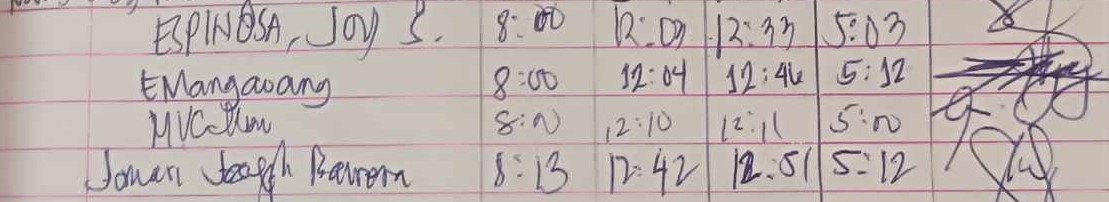 ESPINOSA, JOY S. 8:00 12:09 12:33 5:03
EMangaoang 8:00 12:04 12:46 5:12
8:00 12:10 12:11 5:00
Joseph 8:13 12:42 12:51 5:12